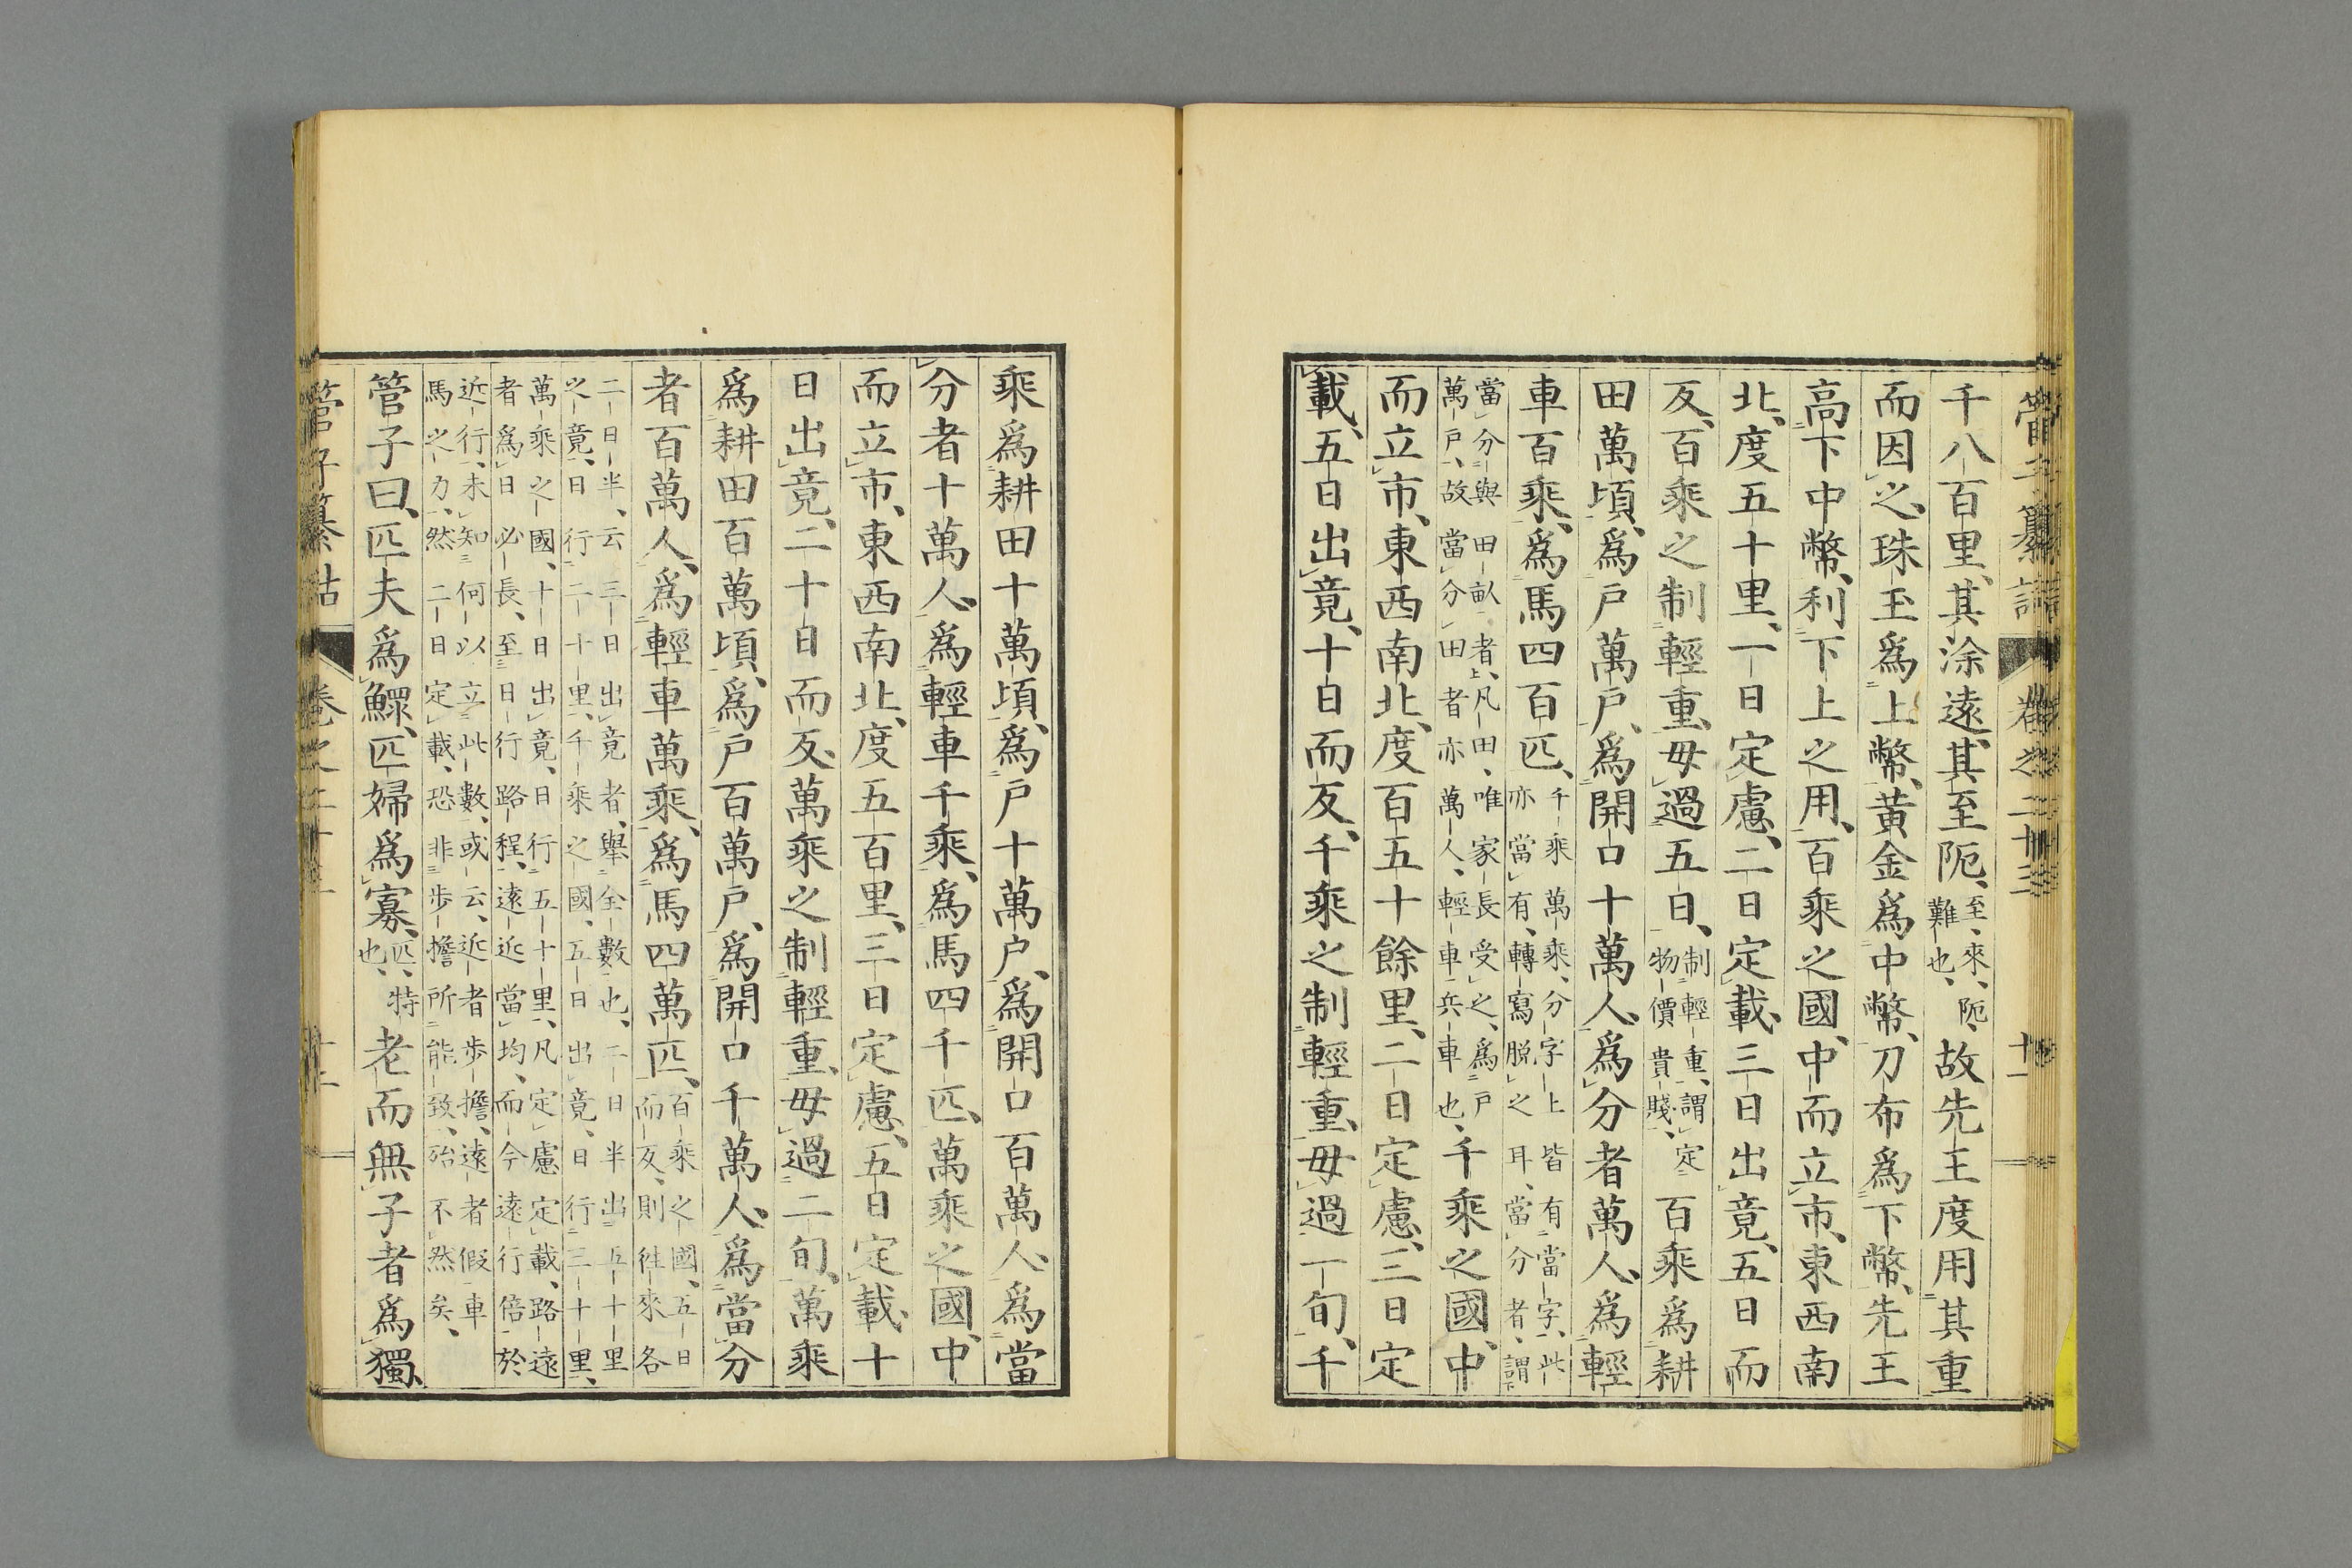 管子纂詁 卷之二十三 十一
千八百里、其涂遠、其至阨、至、來、阨、難也、故先王度用其重
而因之、珠玉爲上幣、黃金爲中幣、刀布爲下幣、先王
高下中幣、利下上之用、百乘之國、中而立市、東西南
北、度五十里、一日定慮、二日定載、三日出竟、五日而
反、百乘之制輕重、毋過五日、制輕重、謂定物價貴賤、百乘爲耕
田萬頃、爲戶萬戶、爲開口十萬人、爲分者萬人、爲輕
車百乘、爲馬四百匹、千乘萬乘、分字上皆有當字、此亦當有、轉寫脫之耳、當分者、謂
當分與田畝者上、凡田、唯家長受之、爲戶萬戶、故當分田者亦萬人、輕車、兵車也、千乘之國、中
而立市、東西南北、度百五十餘里、二日定慮、三日定
載、五日出竟、十日而反、千乘之制輕重、毋過一旬、千
乘爲耕田十萬頃、爲戶十萬戶、爲開口百萬人、爲當
分者十萬人、爲輕車千乘、爲馬四千匹、萬乘之國、中
而立市、東西南北、度五百里、三日定慮、五日定載、十
日出竟、二十日而反、萬乘之制輕重、毋過二旬、萬乘
爲耕田百萬頃、爲戶百萬戶、爲開口千萬人、爲當分
者百萬人、爲輕車萬乘、爲馬四萬匹、百乘之國、五日而反、則徃來各
二日半、云三日出竟者、舉全數也、二日半出五十里之竟、日行二十里、千乘之國、五日出竟、日行三十里、
萬乘之國、十日出竟、日行五十里、凡定慮定載、路遠者爲日必長、至日行路程、遠近當均、而今遠行倍於
近行、未知何以立此數、或云、近者步擔、遠者假車馬之力、然二日定載、恐非步擔所能致、殆不然矣、
管子曰、匹夫爲鰥、匹婦爲寡、匹、特也、老而無子者爲獨、
管子纂詁 卷之二十三